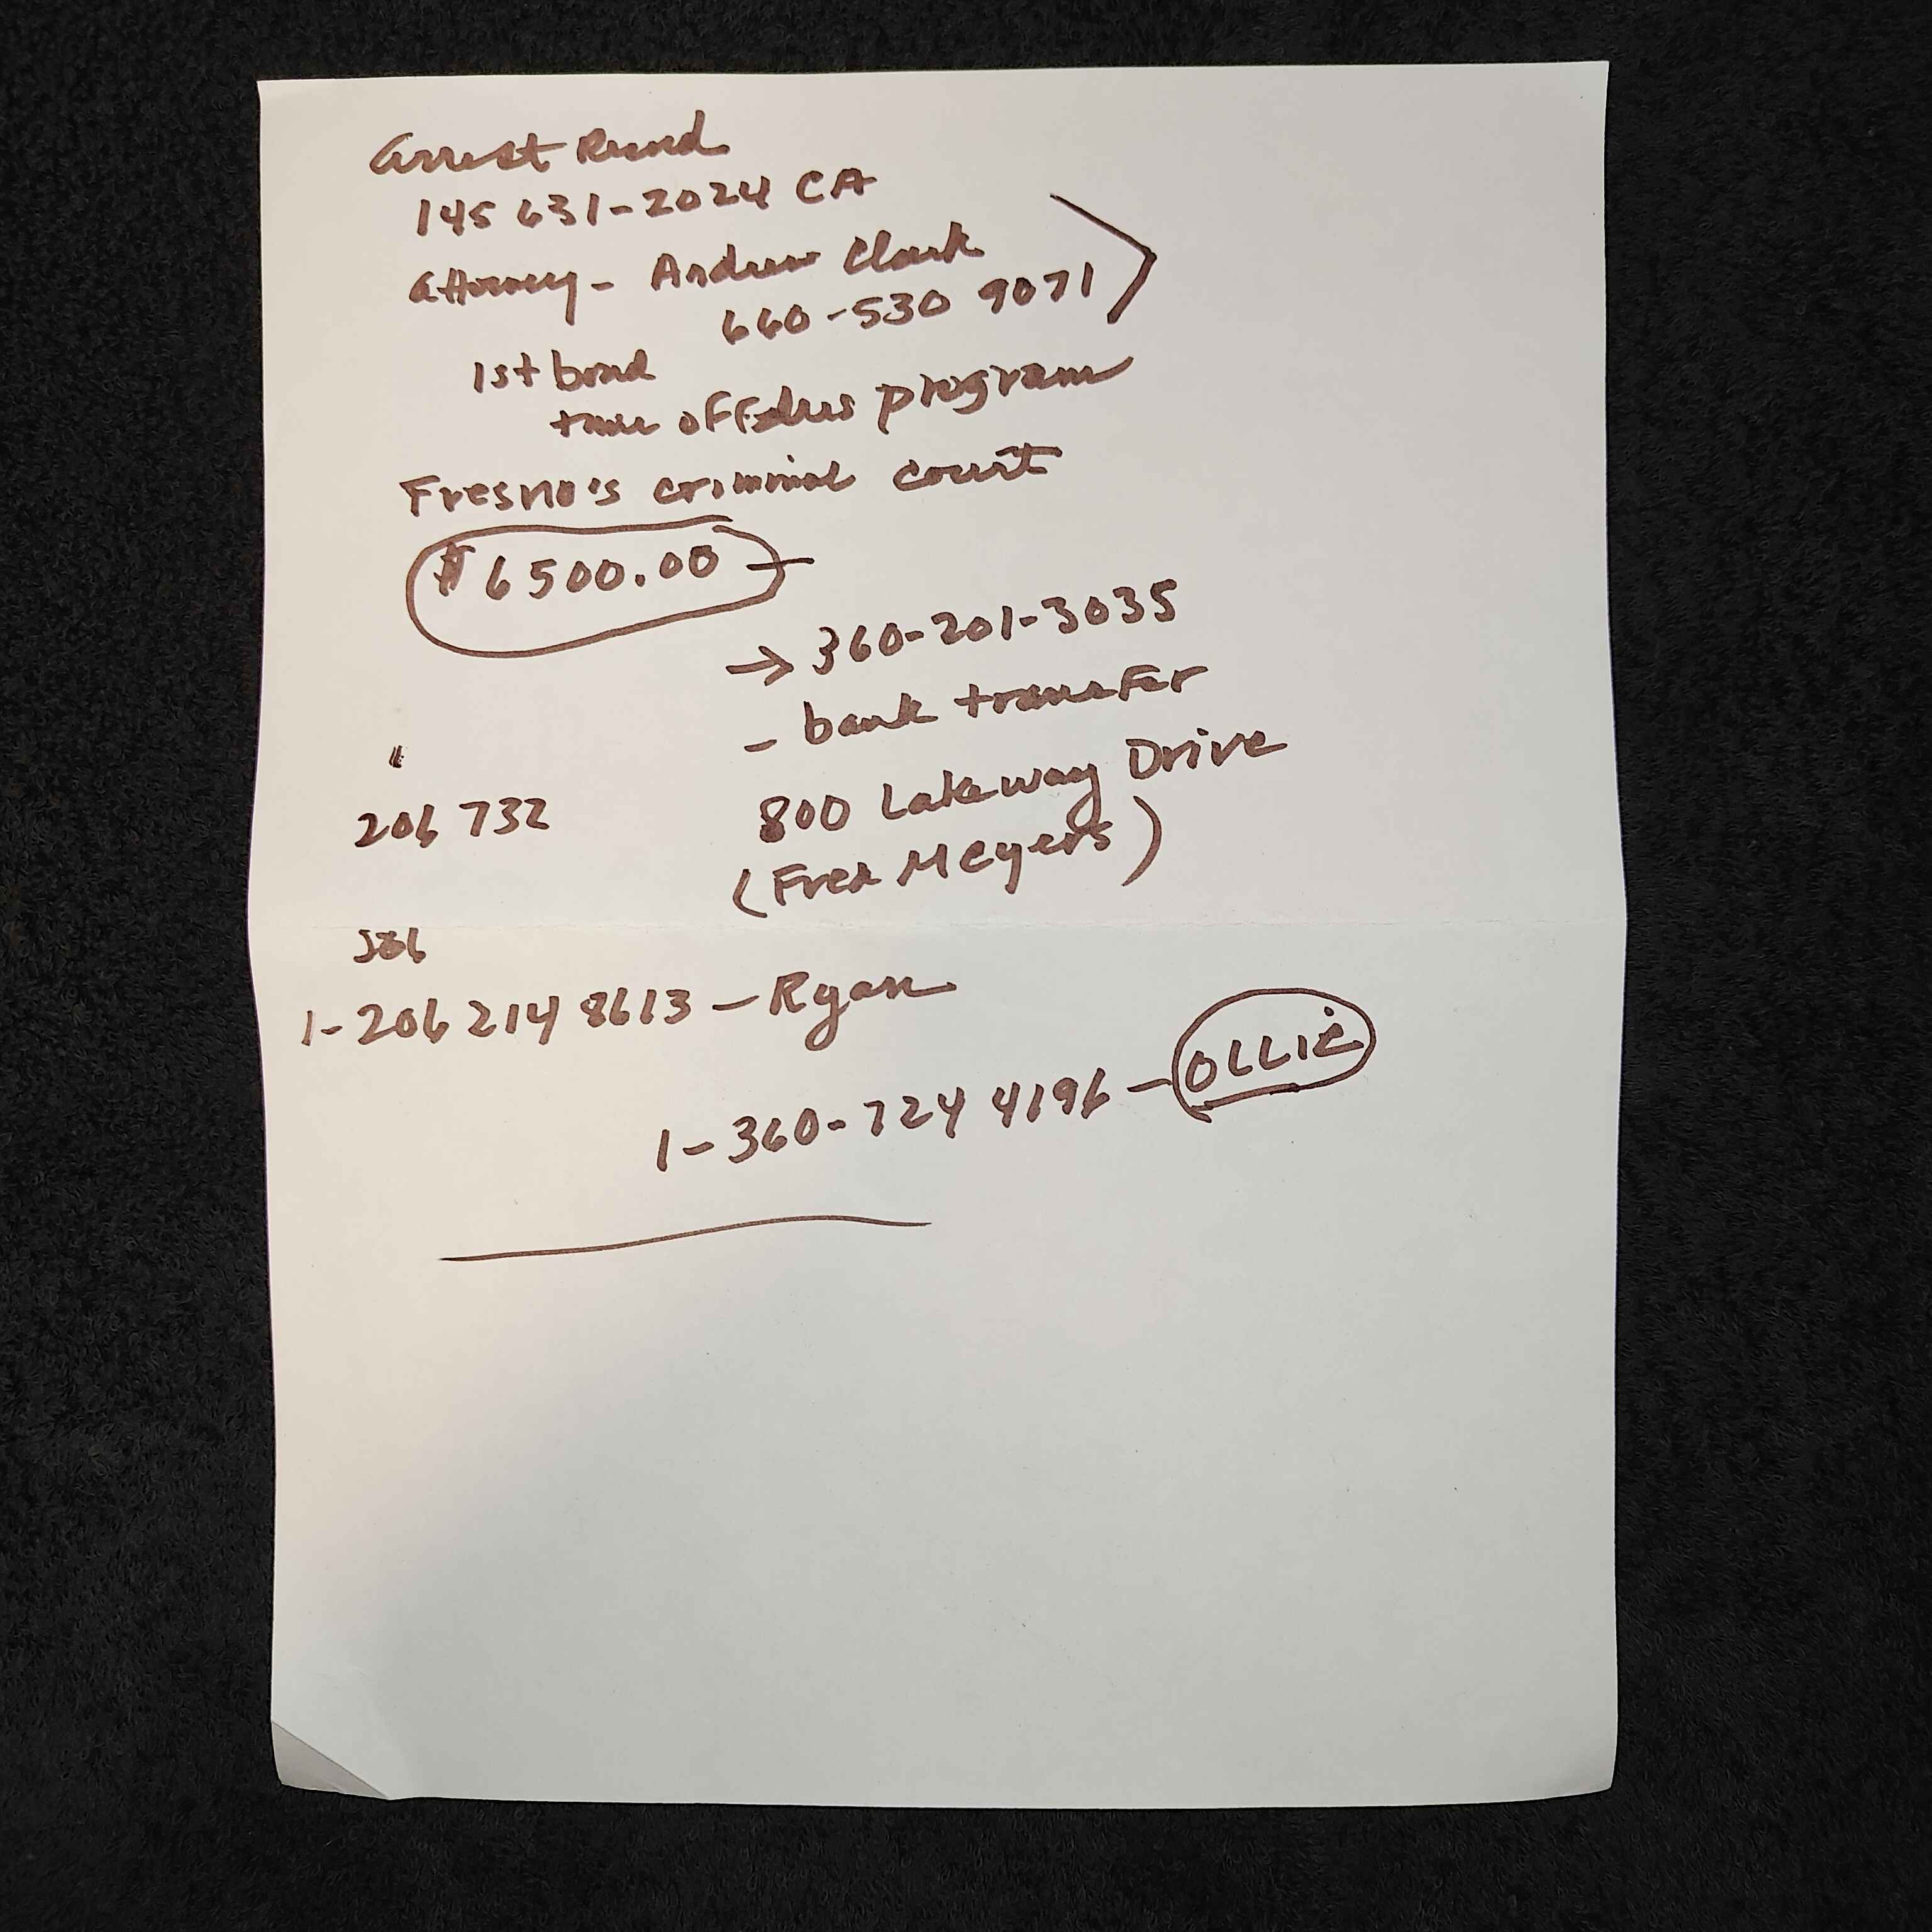 arrest Record
145 631-2024 CA
attorney - Andrew Clark
660-530 9071
1st bond
time offenders program
Fresno's criminal court
$6500.00 -
→ 360-201-3035
- bank transfer
206 732
800 Lakeway Drive
(Fred Meyers)
1-206 214 8613 - Ryan
1-360-724 4196 - OLLIE